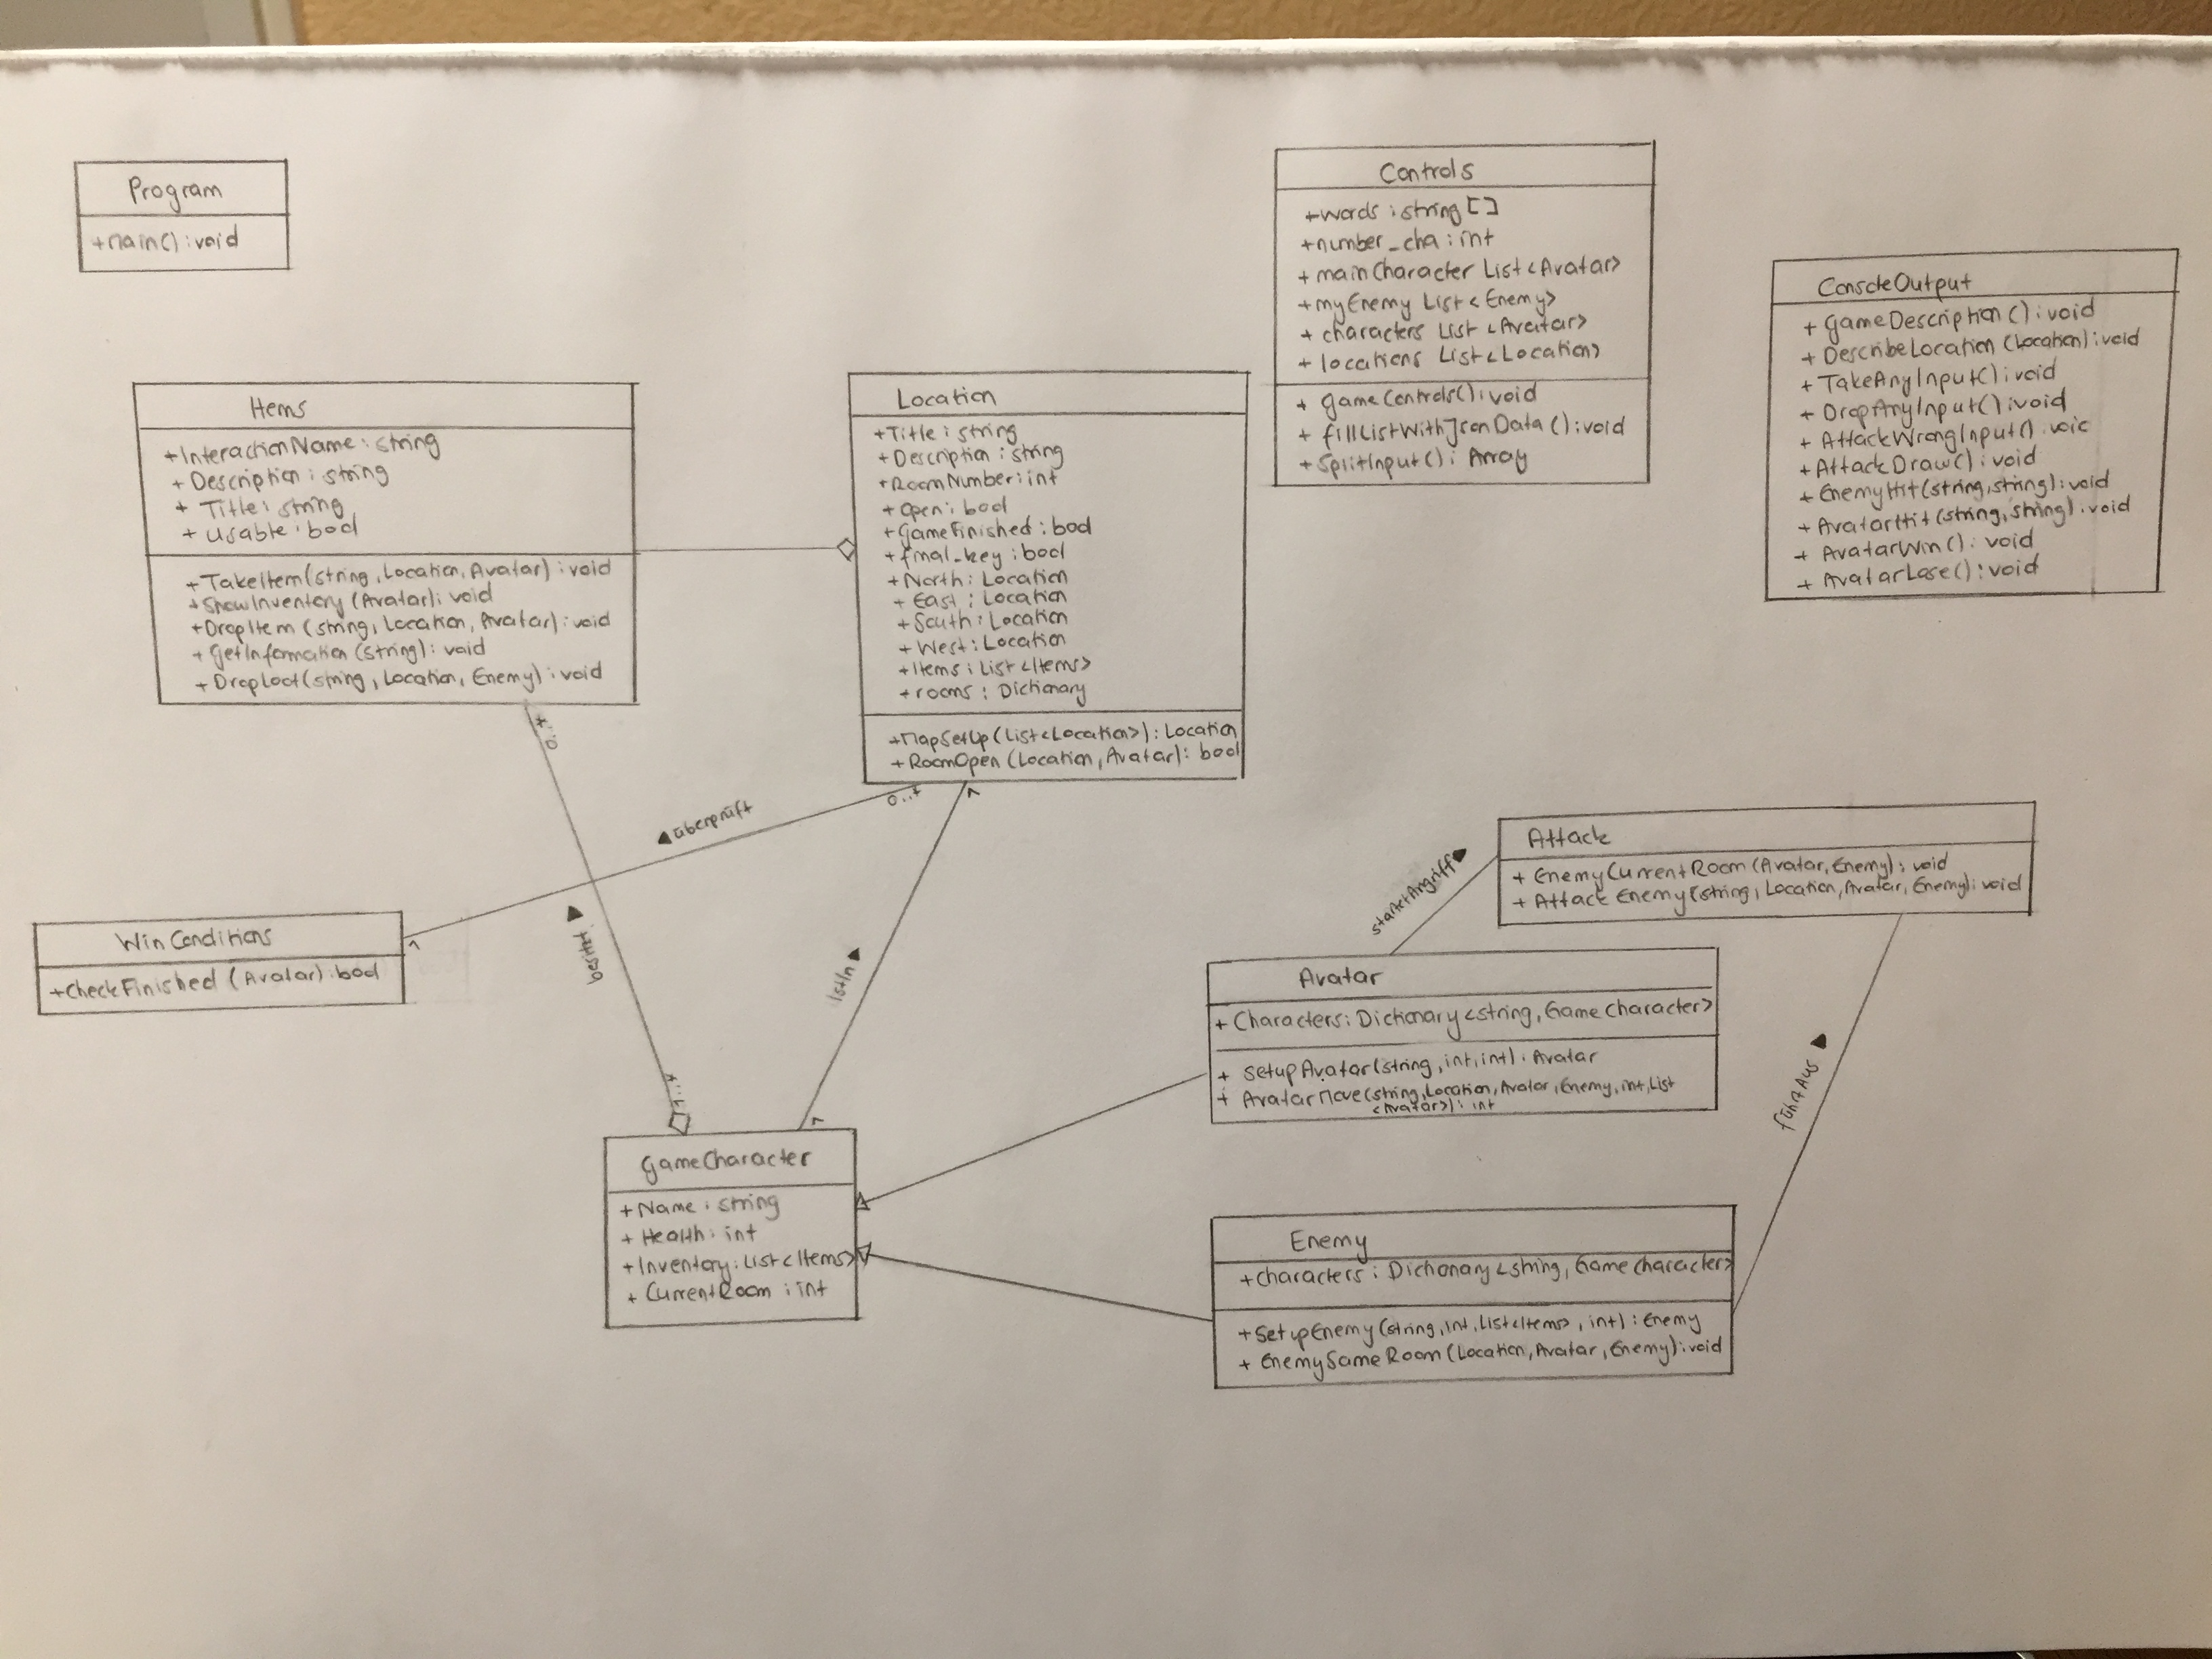 Program
+Main() : void
Controls
+words : string []
+number_cha : int
+ mainCharacter List <Avatar>
+myEnemy List < Enemy>
+ characters List <Avatar>
+ locations List <Location>
+ gameControls() : void
+ fillListWithJsonData () : void
+SplitInput () : Array
ConsoleOutput
+ GameDescription () : void
+ DescribeLocation (Location) : void
+ TakeAnyInput() : void
+ DropAnyInput() : void
+ AttackWrongInput() : void
+ AttackDraw() : void
+ EnemyHit(string,string) : void
+ AvatarHit(string, string) : void
+ AvatarWin() : void
+ AvatarLose() : void
Items
+InteractionName : string
+ Description : string
+ Title : string
+ Usable : bool
+TakeItem(string, Location, Avatar) : void
+ShowInventory (Avatar) : void
+DropItem (string, Location, Avatar) : void
+ GetInformation (string) : void
+ DropLoot(string, Location, Enemy) : void
Location
+Title : string
+ Description : string
+RoomNumber : int
+ Open : bool
+GameFinished : bool
+ final_key : bool
+North : Location
+ East : Location
+South : Location
+ West : Location
+Items : List <Items>
+rooms : Dictionary
+MapSetUp (List<Location>) : Location
+ RoomOpen (Location, Avatar) : bool
0..*
0..*
überprüft
Attack
+ EnemyCurrentRoom (Avatar, Enemy) : void
+ Attack Enemy(string, Location, Avatar, Enemy) : void
startetAngriff
WinConditions
+CheckFinished (Avatar) : bool
besitzt
IstIn
Avatar
+ Characters : Dictionary <string, GameCharacter>
+ setupAvatar(string, int, int) : Avatar
+ AvatarMove(string, Location, Avatar, Enemy, int, List
<Avatar>) : int
führtAus
1..*
GameCharacter
+ Name : string
+ Health : int
+ Inventory : List <Items>
+ CurrentRoom : int
Enemy
+Characters : Dictionary <string, GameCharacter>
+SetupEnemy (string, int, List<Items>, int) : Enemy
+ EnemySameRoom (Location, Avatar, Enemy) : void